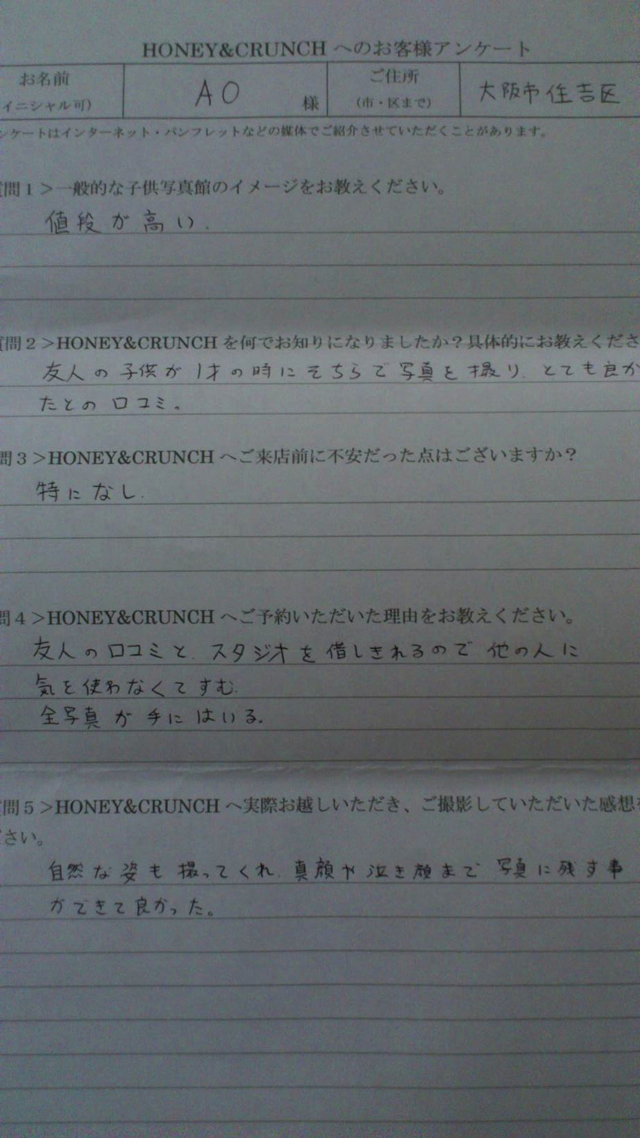 HONEY&CRUNCH へのお客様アンケート
お名前 AO 様 ご住所 大阪市住吉区
イニシャル可) (市・区まで)
ンケートはインターネット・パンフレットなどの媒体でご紹介させていただくことがあります。
問1>一般的な子供写真館のイメージをお教えください。
値段が高い.
質問2>HONEY&CRUNCH を何でお知りになりましたか?具体的にお教えくださ
友人の子供が1才の時にそちらで写真を撮り、とても良か
たとの口コミ。
問3>HONEY&CRUNCH へご来店前に不安だった点はございますか?
特になし.
問4>HONEY&CRUNCH へご予約いただいた理由をお教えください。
友人の口コミと、スタジオを借しきれるので他の人に
気を使わなくてすむ.
全写真が手にはいる。
質問5>HONEY&CRUNCH へ実際お越しいただき、ご撮影していただいた感想を
ださい。
自然な姿も撮ってくれ、真顔や泣き顔まで写真に残す事
ができて良かった。